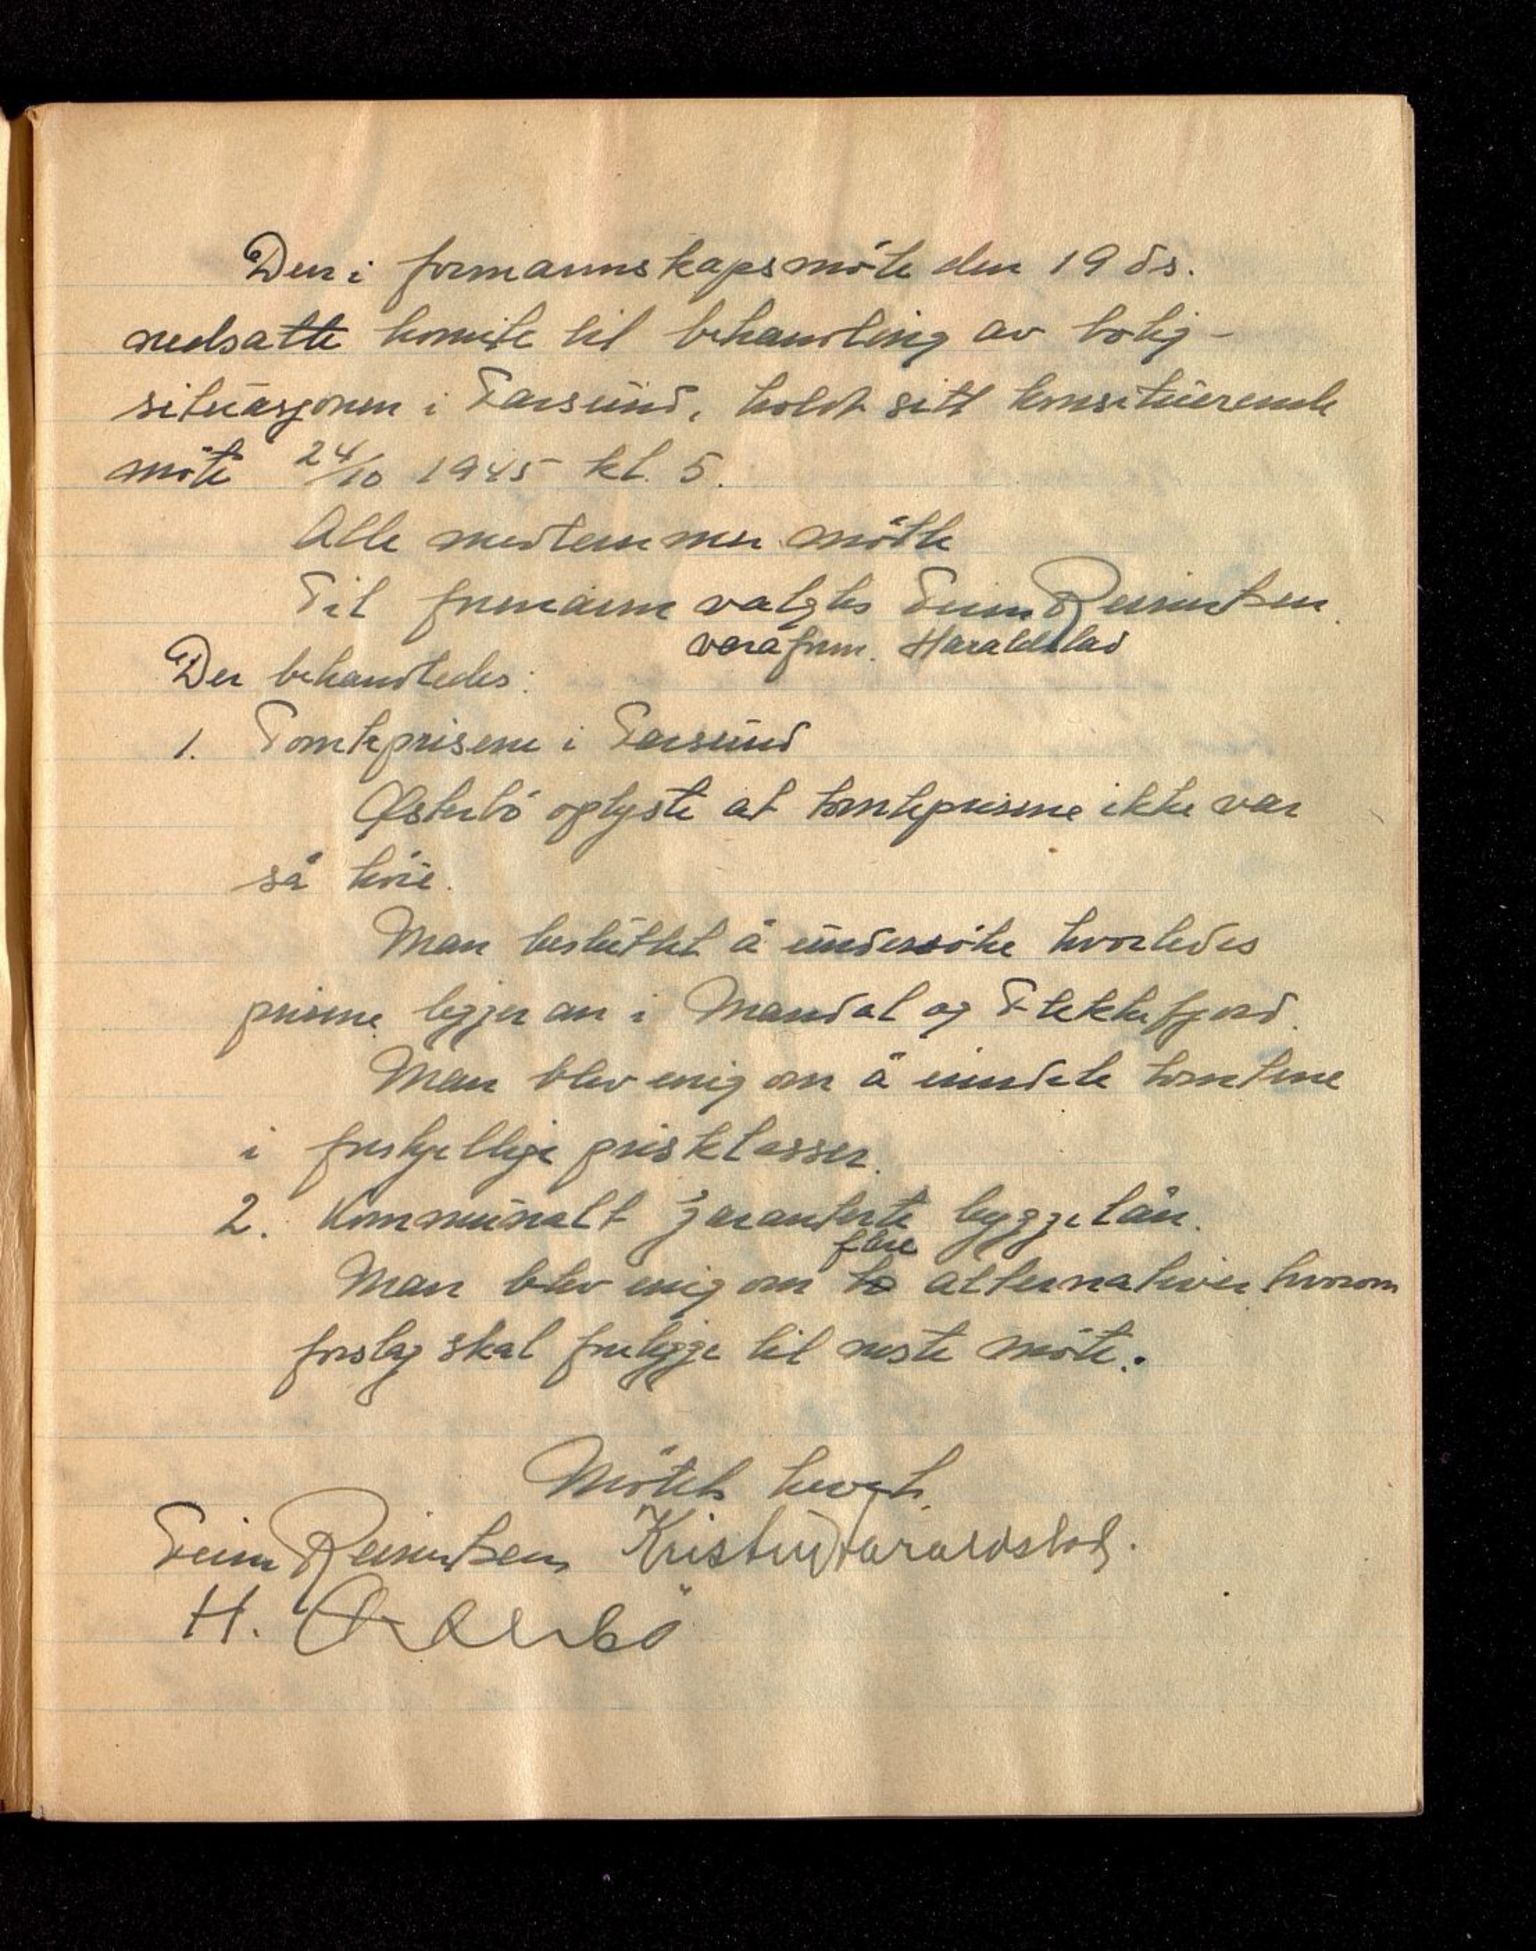 Den i formannskapsmöte den 19 ds.
nedsatte komite til behandling av bolig-
situasjonen i Farsund, holdt sitt konsituerende
möte 24/10 1945 kl. 5.
Alle medlemmer mötte
Til formann valgtes Reinertsen.
varaform. Haraldstad
Der behandledes:
1. Tomteprisene i Farsund
Østerbö oplyste at tomteprisene ikke var
så höie.
Man besluttet å undersöke hvorledes
prisene ligger an i Mandal og Flekkefjord.
Man blev enig om å inndele tomtene
i forskjellige prisklasser.
2. Kommunalt garanterte byggelån.
flere
Man blev enig om to alternativer hvorom
forslag skal foreligge til neste möte.
Mötet hevet.
Reinertsen Kristen Haraldstad.
H. Österbö